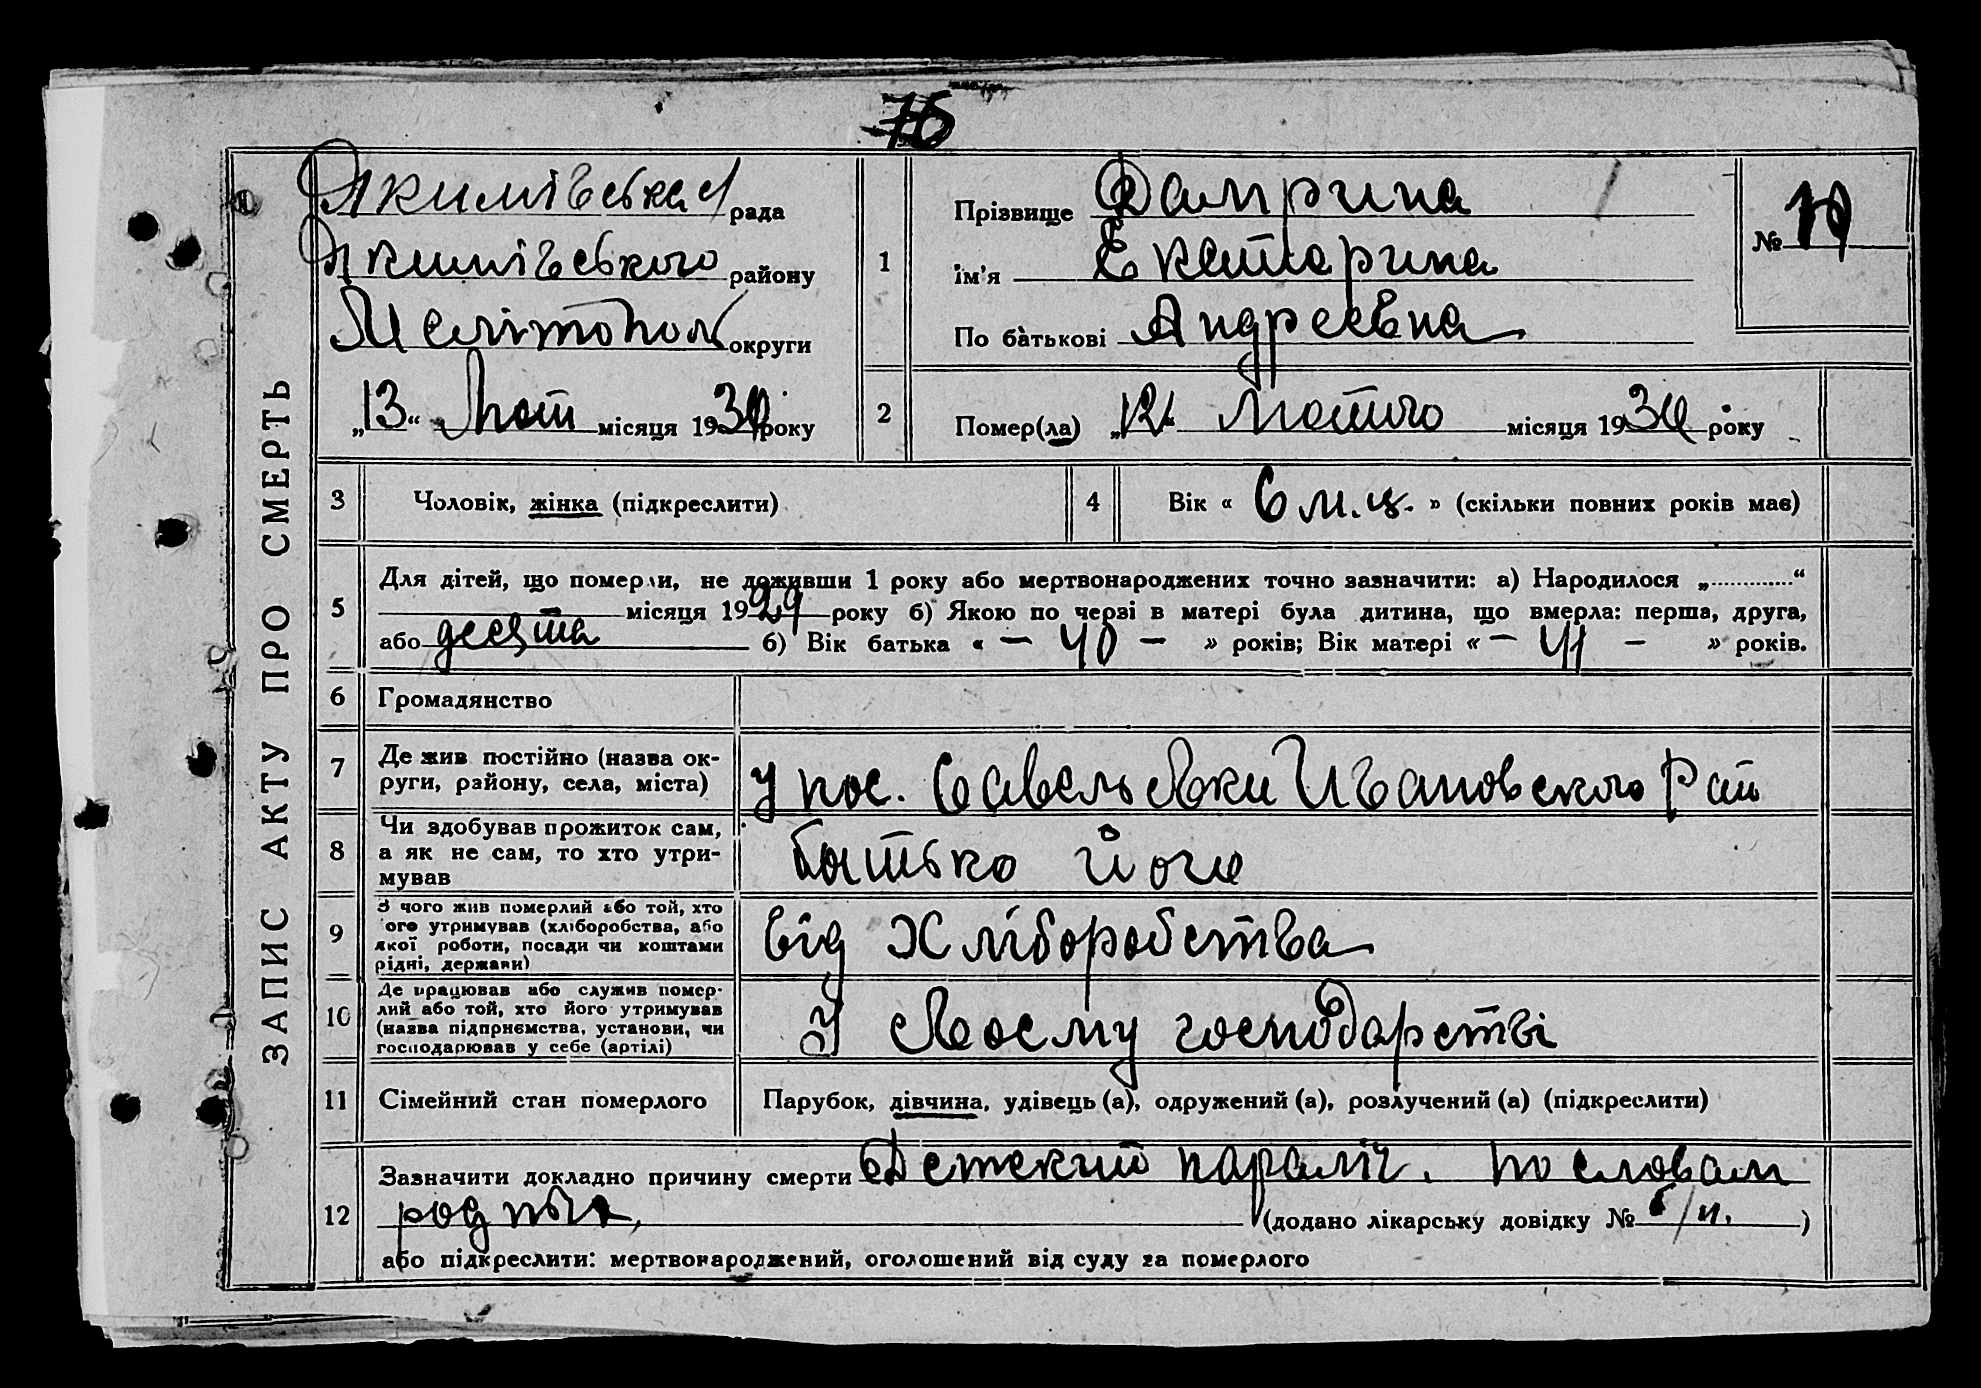 75
ЗАПИС АКТУ ПРО СМЕРТЬ
Якимівська рада
Якимівського району
Мелітопол округи
„13“ Лют місяця 1930 року
1
Прізвище
ім'я Екатарина
По батькові Андреевна
№
2
Помер(ла) „12“ Лютого місяця 1930 року
3
Чоловік, жінка (підкреслити)
4
Вік « 6 м.ц. » (скільки повних років має)
5
Для дітей, що померли, не доживши 1 року або мертвонароджених точно зазначити: а) Народилося „.............“
місяця 1929 року б) Якою по черзі в матері була дитина, що вмерла: перша, друга,
або десята б) Вік батька « – 40 – » років; Вік матері « – 41 – » років.
6
Громадянство
7
Де жив постійно (назва ок-
руги, району, села, міста)
у пос. Савельевки Ивановского Рай
8
Чи здобував прожиток сам,
а як не сам, то хто утри-
мував
батько його
9
З чого жив померлий або той, хто
ого утримував (хліборобства, або
якої роботи, посади чи коштами
рідні, держави)
від Хліборобства
10
Де працював або служив помер-
лий або той, хто його утримував
(назва підприємства, установи, чи
господарював у себе (артілі)
У своєму господарстві
11
Сімейний стан померлого
Парубок, дівчина, удівець (а), одружений (а), розлучений (а) (підкреслити)
12
Зазначити докладно причину смерти Детский параліч. по словам
родных, (додано лікарську довідку № б/н. )
або підкреслити: мертвонароджений, оголошений від суду за померлого